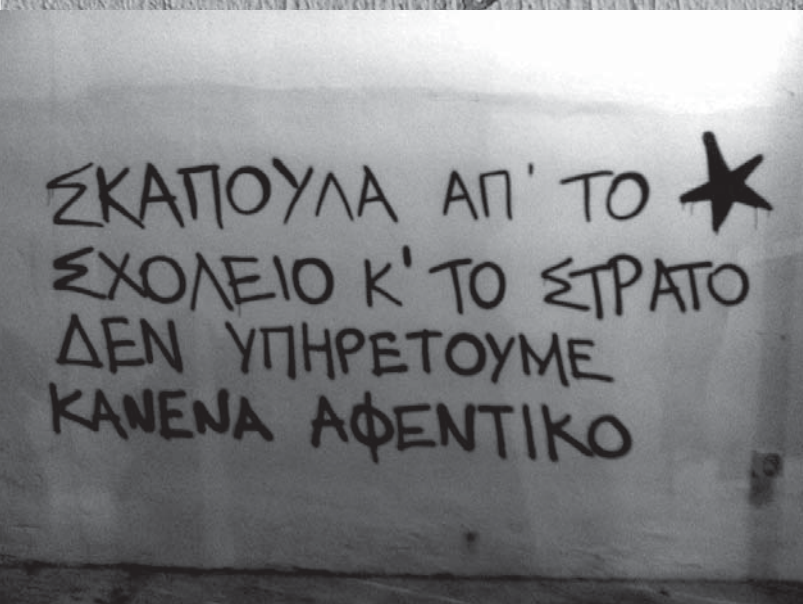 ΣΚΑΠΟΥΛΑ ΑΠ' ΤΟ
ΣΧΟΛΕΙΟ Κ' ΤΟ ΣΤΡΑΤΟ
ΔΕΝ ΥΠΗΡΕΤΟΥΜΕ
ΚΑΝΕΝΑ ΑΦΕΝΤΙΚΟ